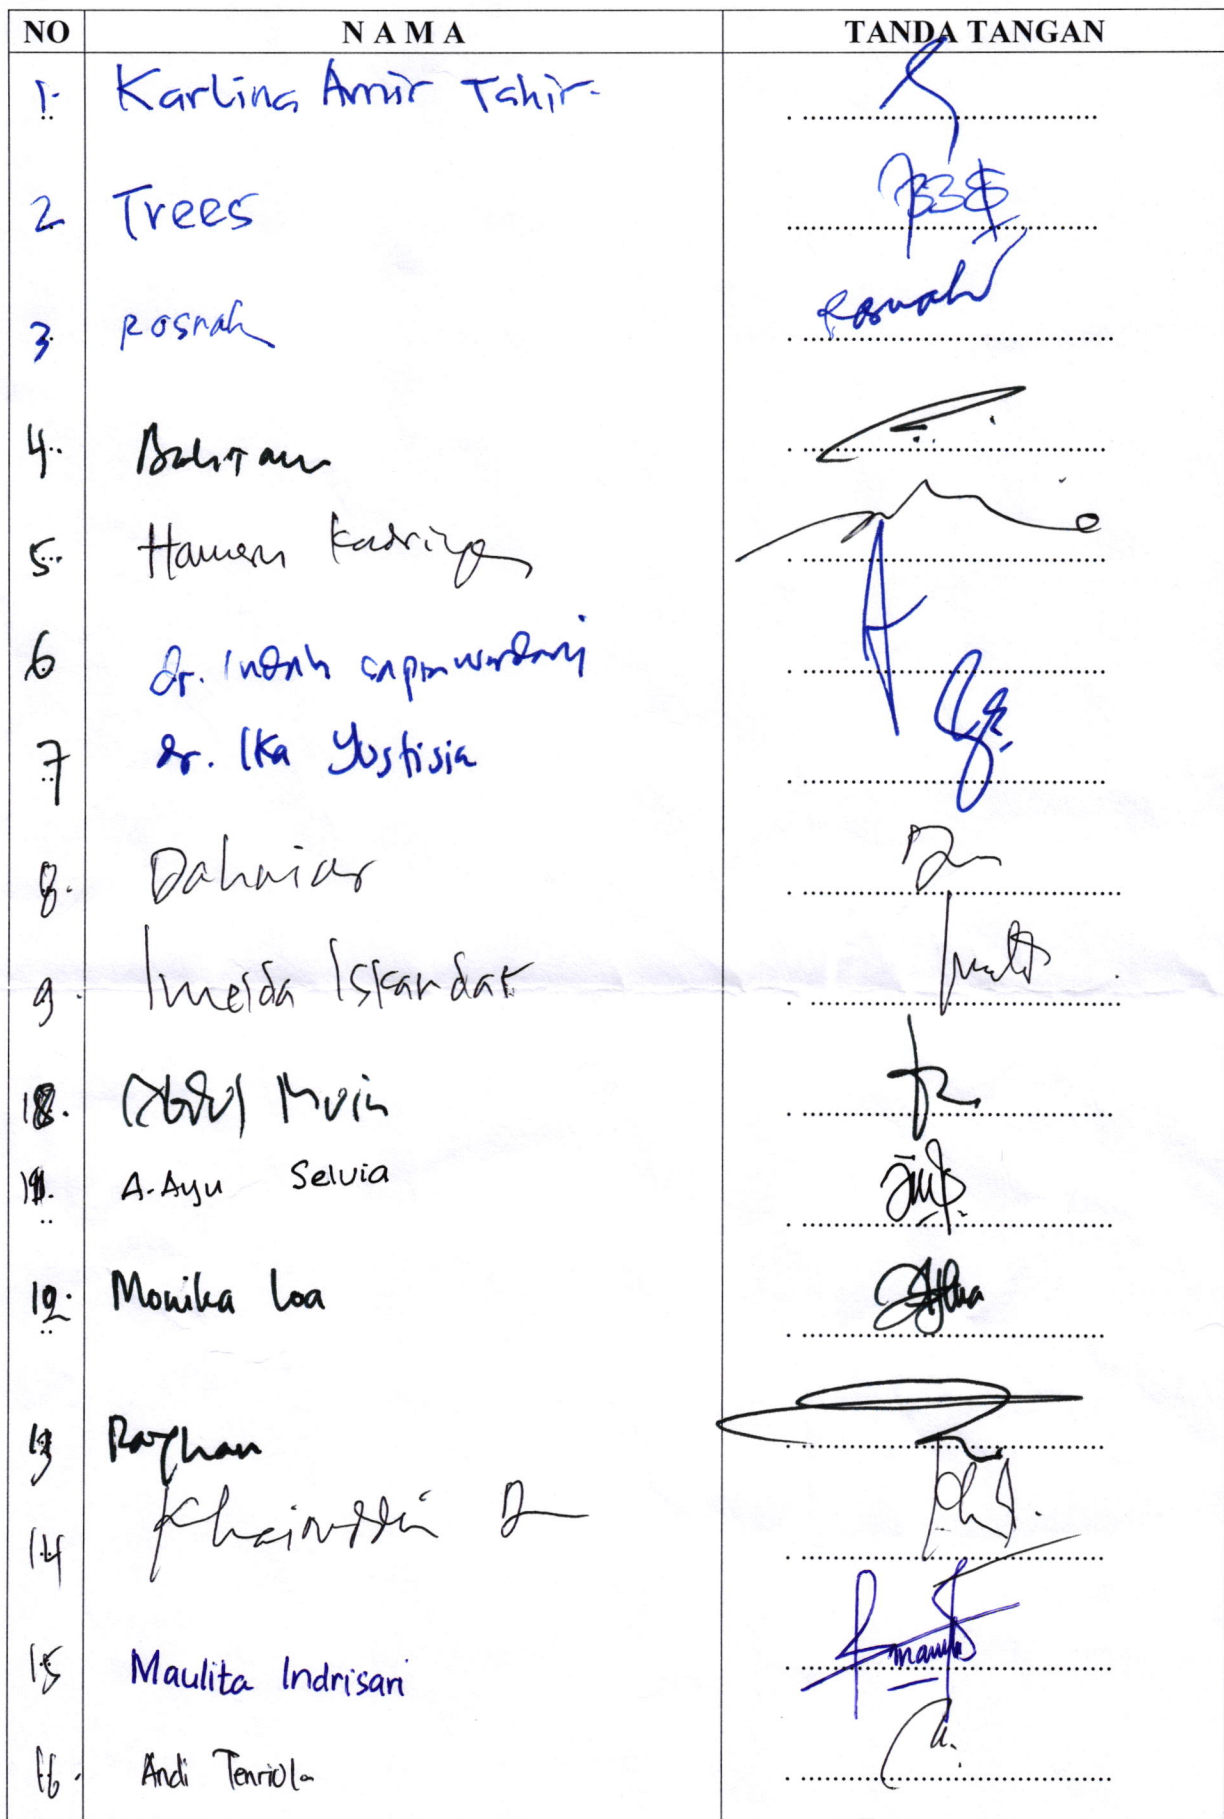 NO N A M A TANDA TANGAN
1. Karlina Amir Tahir
2 Trees
3 Rosnah Rosnah
4.
5.
6 dr. Indah
7 dr. Ika Yustisia
8. Dahniar
9. Imelda Iskandar
10. Muin
11. A. Ayu Selvia
12. Monika Loa
13 Rayhan
14 Khairuddin
15 Maulita Indrisari
16. Andi Tenriola